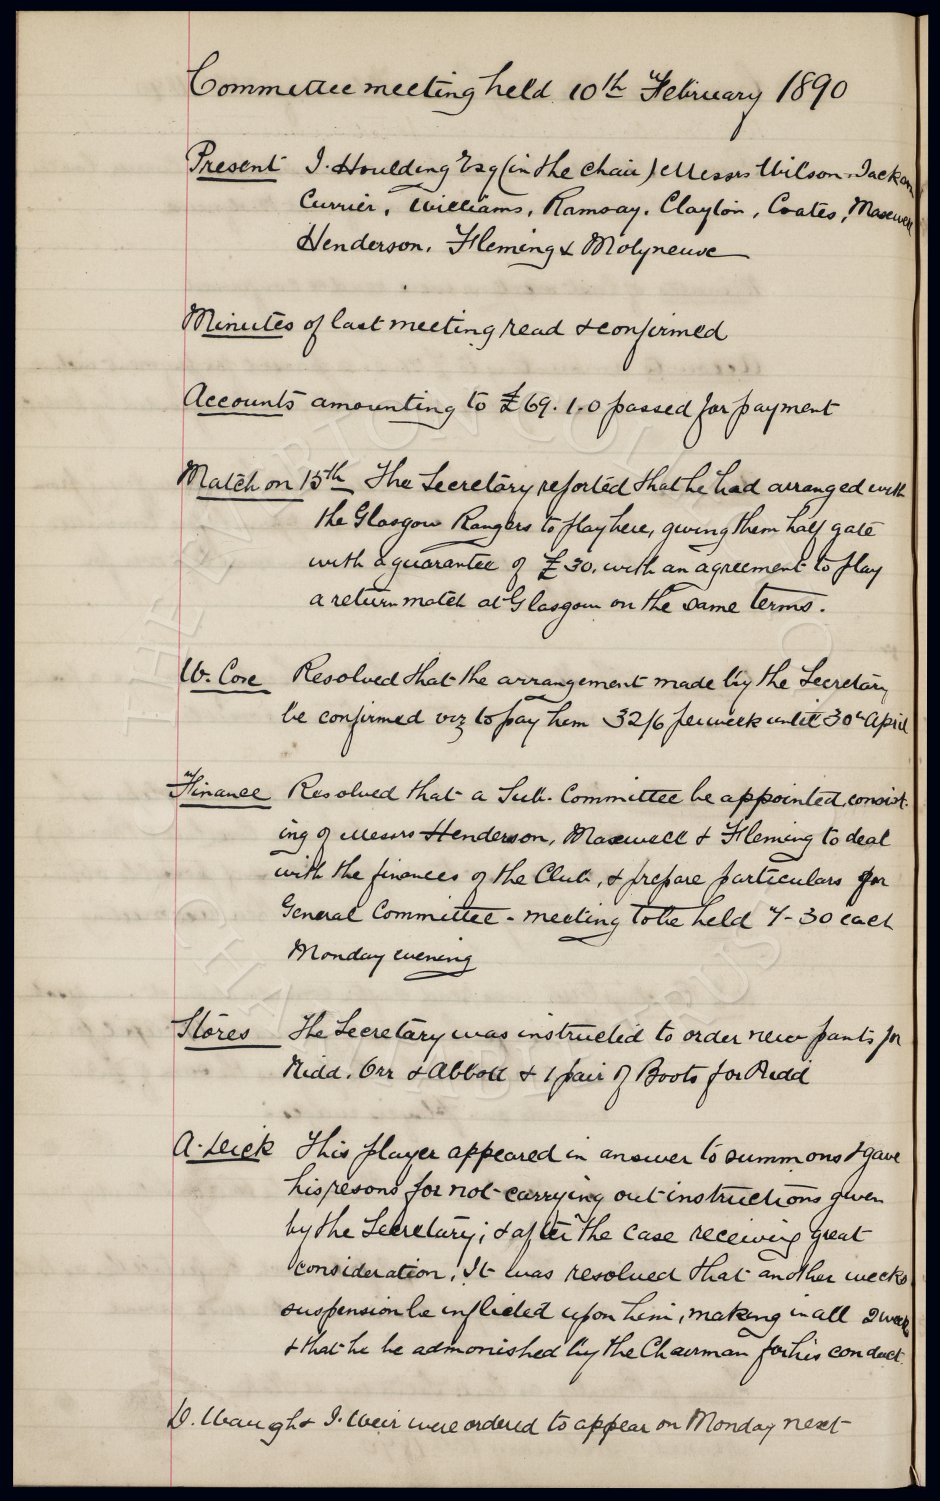 Committee meeting held 10th February 1890
Present J. Houlding Esq (in the chair) Messrs Wilson, Jackson
Currier, Williams, Ramsay, Clayton, Coates, Maxwell
Henderson, Fleming & Molyneux
Minutes of last meeting read & confirmed
Accounts amounting to £69.1.0 passed for payment
Match on 15th The Secretary reported that he had arranged with
the Glasgow Rangers to play here, giving them half gate
with a guarantee of £30, with an agreement to play
a return match at Glasgow on the same terms.
W. Cox Resolved that the arrangement made by the Secretary
be confirmed viz to pay him 32/6 per week until 30th April
Finance Resolved that a Sub-Committee be appointed, consist-
ing of Messrs Henderson, Maxwell & Fleming to deal
with the finances of the Club, & prepare particulars for
General Committee - meeting to be held 7-30 each
Monday evening
Stores The Secretary was instructed to order new pants for
Kidd, Orr & Abbott & 1 pair of Boots for Kidd
A. Dick This player appeared in answer to summons & gave
his resons for not carrying out instructions given
by the Secretary; & after the case receiving great
consideration, It was resolved that another weeks
suspension be inflicted upon him, making in all 2 weeks
& that he be admonished by the Chairman for his conduct.
D. Waugh & J. Weir were ordered to appear on Monday next
THE EVERTON COLLECTION
CHARITABLE TRUST